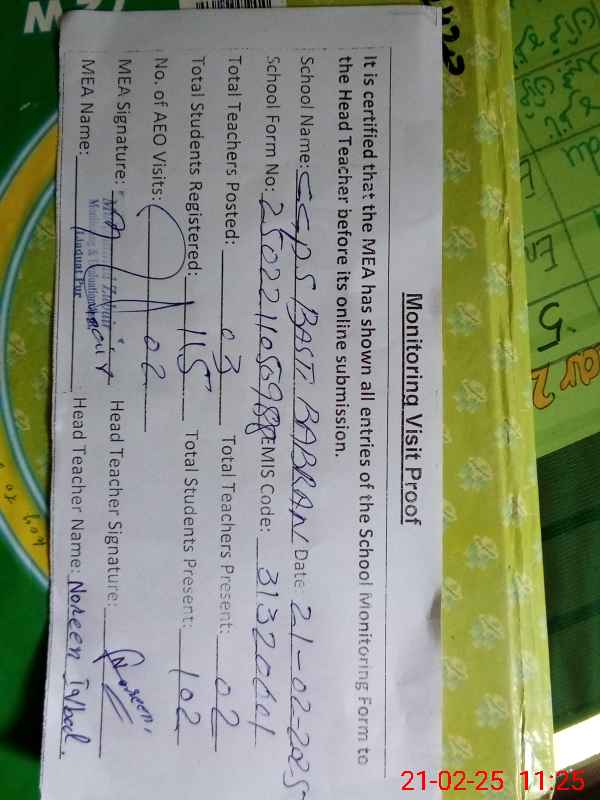 Monitoring Visit Proof
It is certified that the MEA has shown all entries of the School Monitoring Form to
the Head Teacher before its online submission.
School Name: GGPS BASTI BABRAN Date: 21-02-2025
School Form No: EMIS Code: 31320601
Total Teachers Posted: 03 Total Teachers Present: 02
Total Students Registered: 115 Total Students Present: 102
No. of AEO Visits: 02
MEA Signature: Head Teacher Signature: Noreen
MEA Name: Head Teacher Name: Noreen Iqbal.
21-02-25 11:25